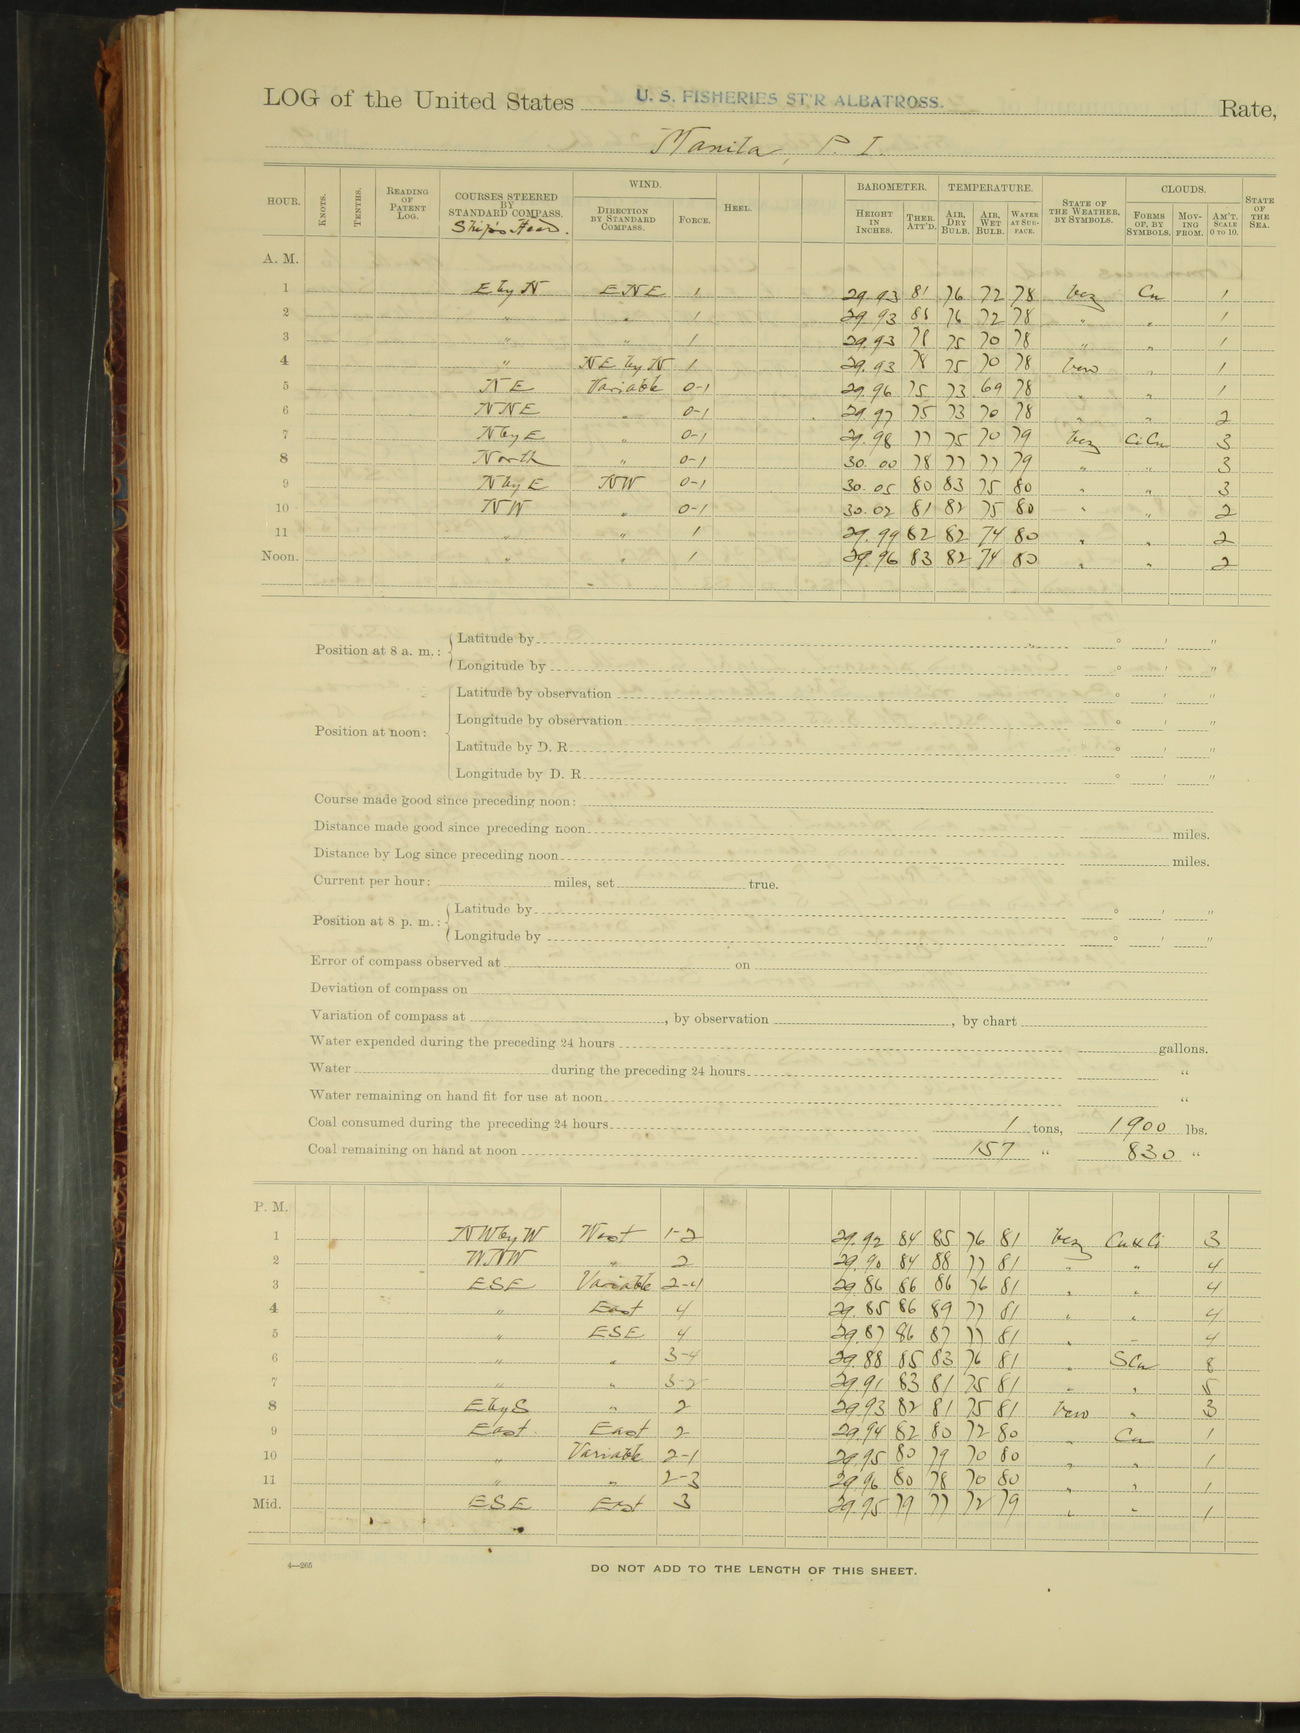 LOG of the United States U. S. FISHERIES ST'R ALBATROSS. Rate,
Manila, P. I.
HOUR. KNOTS. TENTHS. READING OF PATENT LOG. COURSES STEERED BY STANDARD COMPASS. Ship's Head. WIND. DIRECTION BY STANDARD COMPASS. FORCE. HEEL. BAROMETER. HEIGHT IN INCHES. THER. ATT'D. TEMPERATURE. AIR, DRY BULB. AIR, WET BULB. WATER AT SURFACE. STATE OF THE WEATHER, BY SYMBOLS. CLOUDS. FORMS OF, BY SYMBOLS. MOVING FROM. AM'T. SCALE 0 TO 10. STATE OF THE SEA.
A. M.
1 E by N ENE 1 29.93 81 76 72 78 bcz Cu 1
2 " " 1 29.93 81 76 72 78 " " 1
3 " " 1 29.93 78 75 70 78 " " 1
4 " NE by N 1 29.93 78 75 70 78 bcw " 1
5 NE Variable 0-1 29.96 75 73 69 78 " " 1
6 NNE " 0-1 29.97 75 73 70 78 " " 2
7 N by E " 0-1 29.98 77 75 70 79 bcz Ci Cu 3
8 North " 0-1 30.00 78 77 77 79 " " 3
9 N by E NW 0-1 30.05 80 83 75 80 " " 3
10 NW " 0-1 30.02 81 82 75 80 " " 2
11 " " 1 29.99 82 82 74 80 " " 2
Noon. " " 1 29.96 83 82 74 80 " " 2
Position at 8 a. m.: Latitude by ° ′ ″
Longitude by ° ′ ″
Position at noon: Latitude by observation ° ′ ″
Longitude by observation ° ′ ″
Latitude by D. R. ° ′ ″
Longitude by D. R. ° ′ ″
Course made good since preceding noon:
Distance made good since preceding noon miles.
Distance by Log since preceding noon miles.
Current per hour: miles, set true.
Position at 8 p. m.: Latitude by ° ′ ″
Longitude by ° ′ ″
Error of compass observed at on
Deviation of compass on
Variation of compass at , by observation , by chart
Water expended during the preceding 24 hours gallons.
Water during the preceding 24 hours "
Water remaining on hand fit for use at noon "
Coal consumed during the preceding 24 hours 1 tons, 1900 lbs.
Coal remaining on hand at noon 157 " 830 "
P. M.
1 NW by W West 1-2 29.92 84 85 76 81 bcz Cu & Ci 3
2 WNW " 2 29.90 84 88 77 81 " " 4
3 ESE Variable 2-4 29.86 86 86 76 81 " " 4
4 " East 4 29.85 86 89 77 81 " " 4
5 " ESE 4 29.87 86 87 77 81 " " 4
6 " " 3-4 29.88 85 83 76 81 " S Cu 8
7 " " 3-2 29.91 83 81 75 81 " " 5
8 E by S " 2 29.93 82 81 75 81 bcw " 3
9 East East 2 29.94 82 80 72 80 " Cu 1
10 " Variable 2-1 29.95 80 79 70 80 " " 1
11 " " 2-3 29.96 80 78 70 80 " " 1
Mid. ESE East 3 29.95 79 77 72 79 " " 1
4—265
DO NOT ADD TO THE LENGTH OF THIS SHEET.